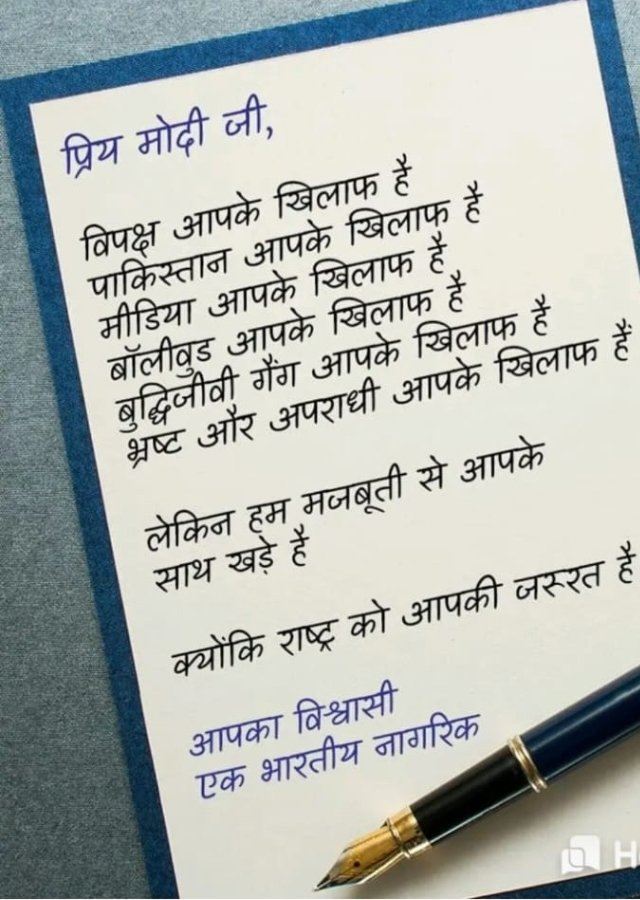 प्रिय मोदी जी,
विपक्ष आपके खिलाफ है
पाकिस्तान आपके खिलाफ है
मीडिया आपके खिलाफ है
बॉलीवुड आपके खिलाफ है
बुद्धिजीवी गैंग आपके खिलाफ है
भ्रष्ट और अपराधी आपके खिलाफ हैं
लेकिन हम मजबूती से आपके
साथ खड़े है
क्योंकि राष्ट्र को आपकी जरूरत है
आपका विश्वासी
एक भारतीय नागरिक